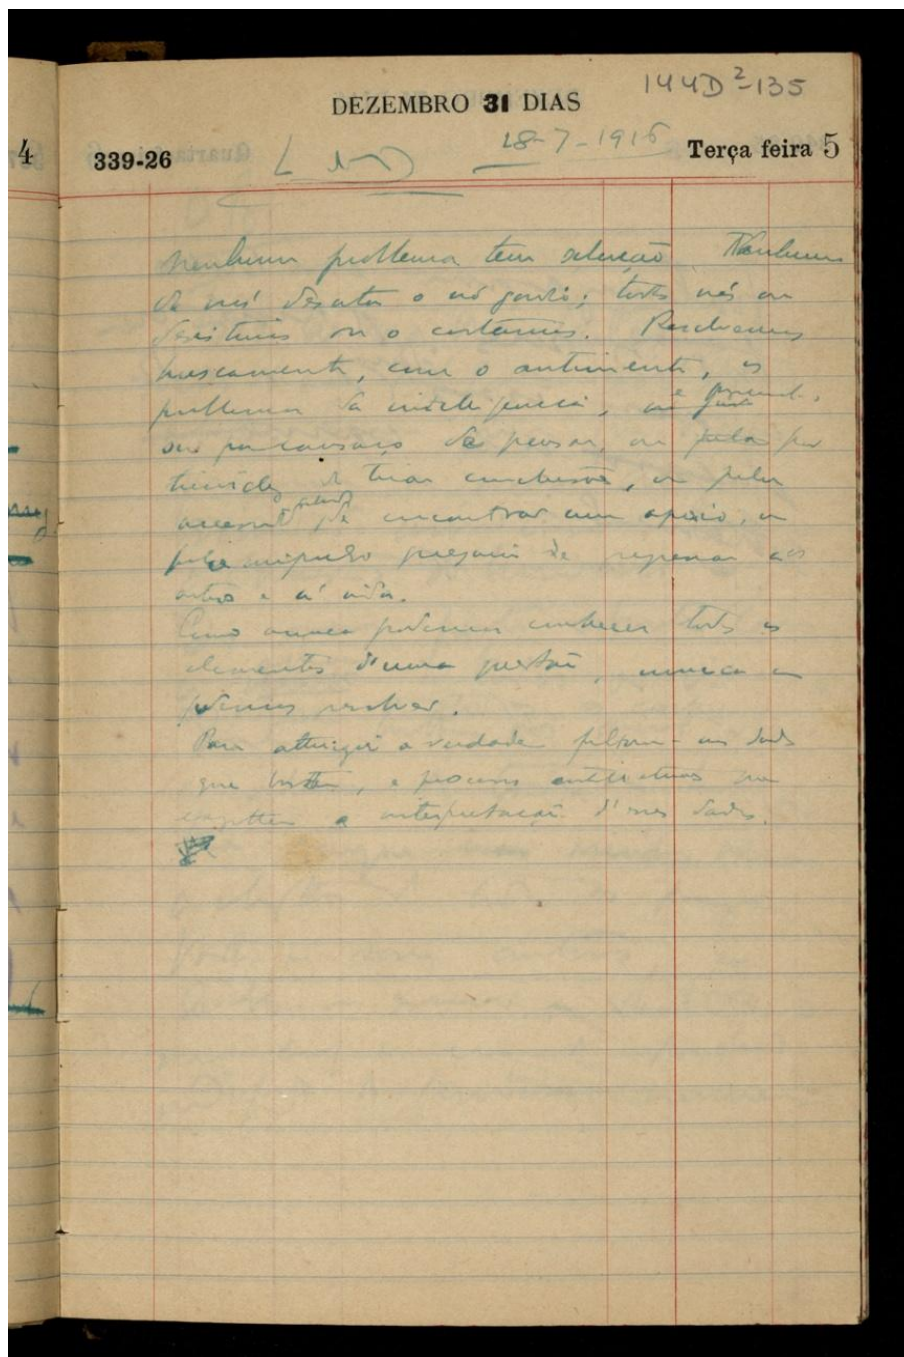 144D²-135
DEZEMBRO 31 DIAS
4
339-26
L do D
18-7-1916
Terça feira 5
Nenhum problema tem solução. Nenhum
de nós desata o nó gordio; todos nós ou
desistimos ou o cortamos. Resolvemos
bruscamente, com o sentimento, os
problemas da intelligencia, e
ou por cansaço de pensar, ou por
timidez de tirar conclusões, ou pela
absurda de encontrar um apoio, ou
pelo impulso gregario de regressar aos
outros e á vida.
Como nunca podemos conhecer todos os
elementos d'uma questão, nunca a
podemos resolver.
Para attingir a verdade faltam-nos dados
que bastem, e processos intellectuaes que
esgottem a interpretação d'esses dados.